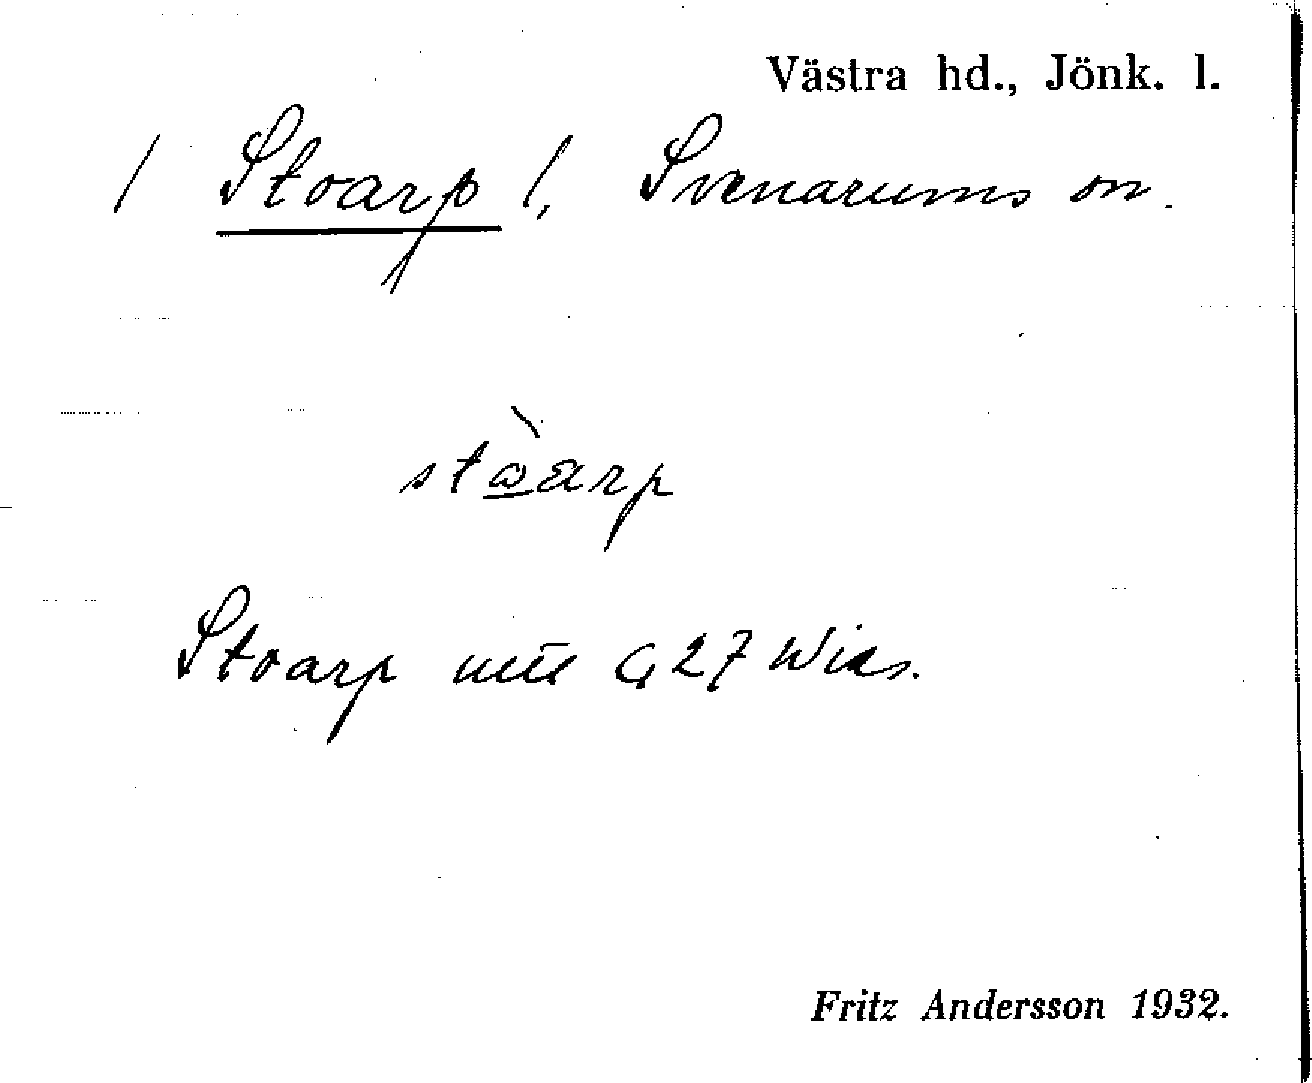 Västra hd., Jönk. l.
/ Stoarp /, Svenarums sn.
stòarp
Stoarp G 27 Wies.
Fritz Andersson 1932.